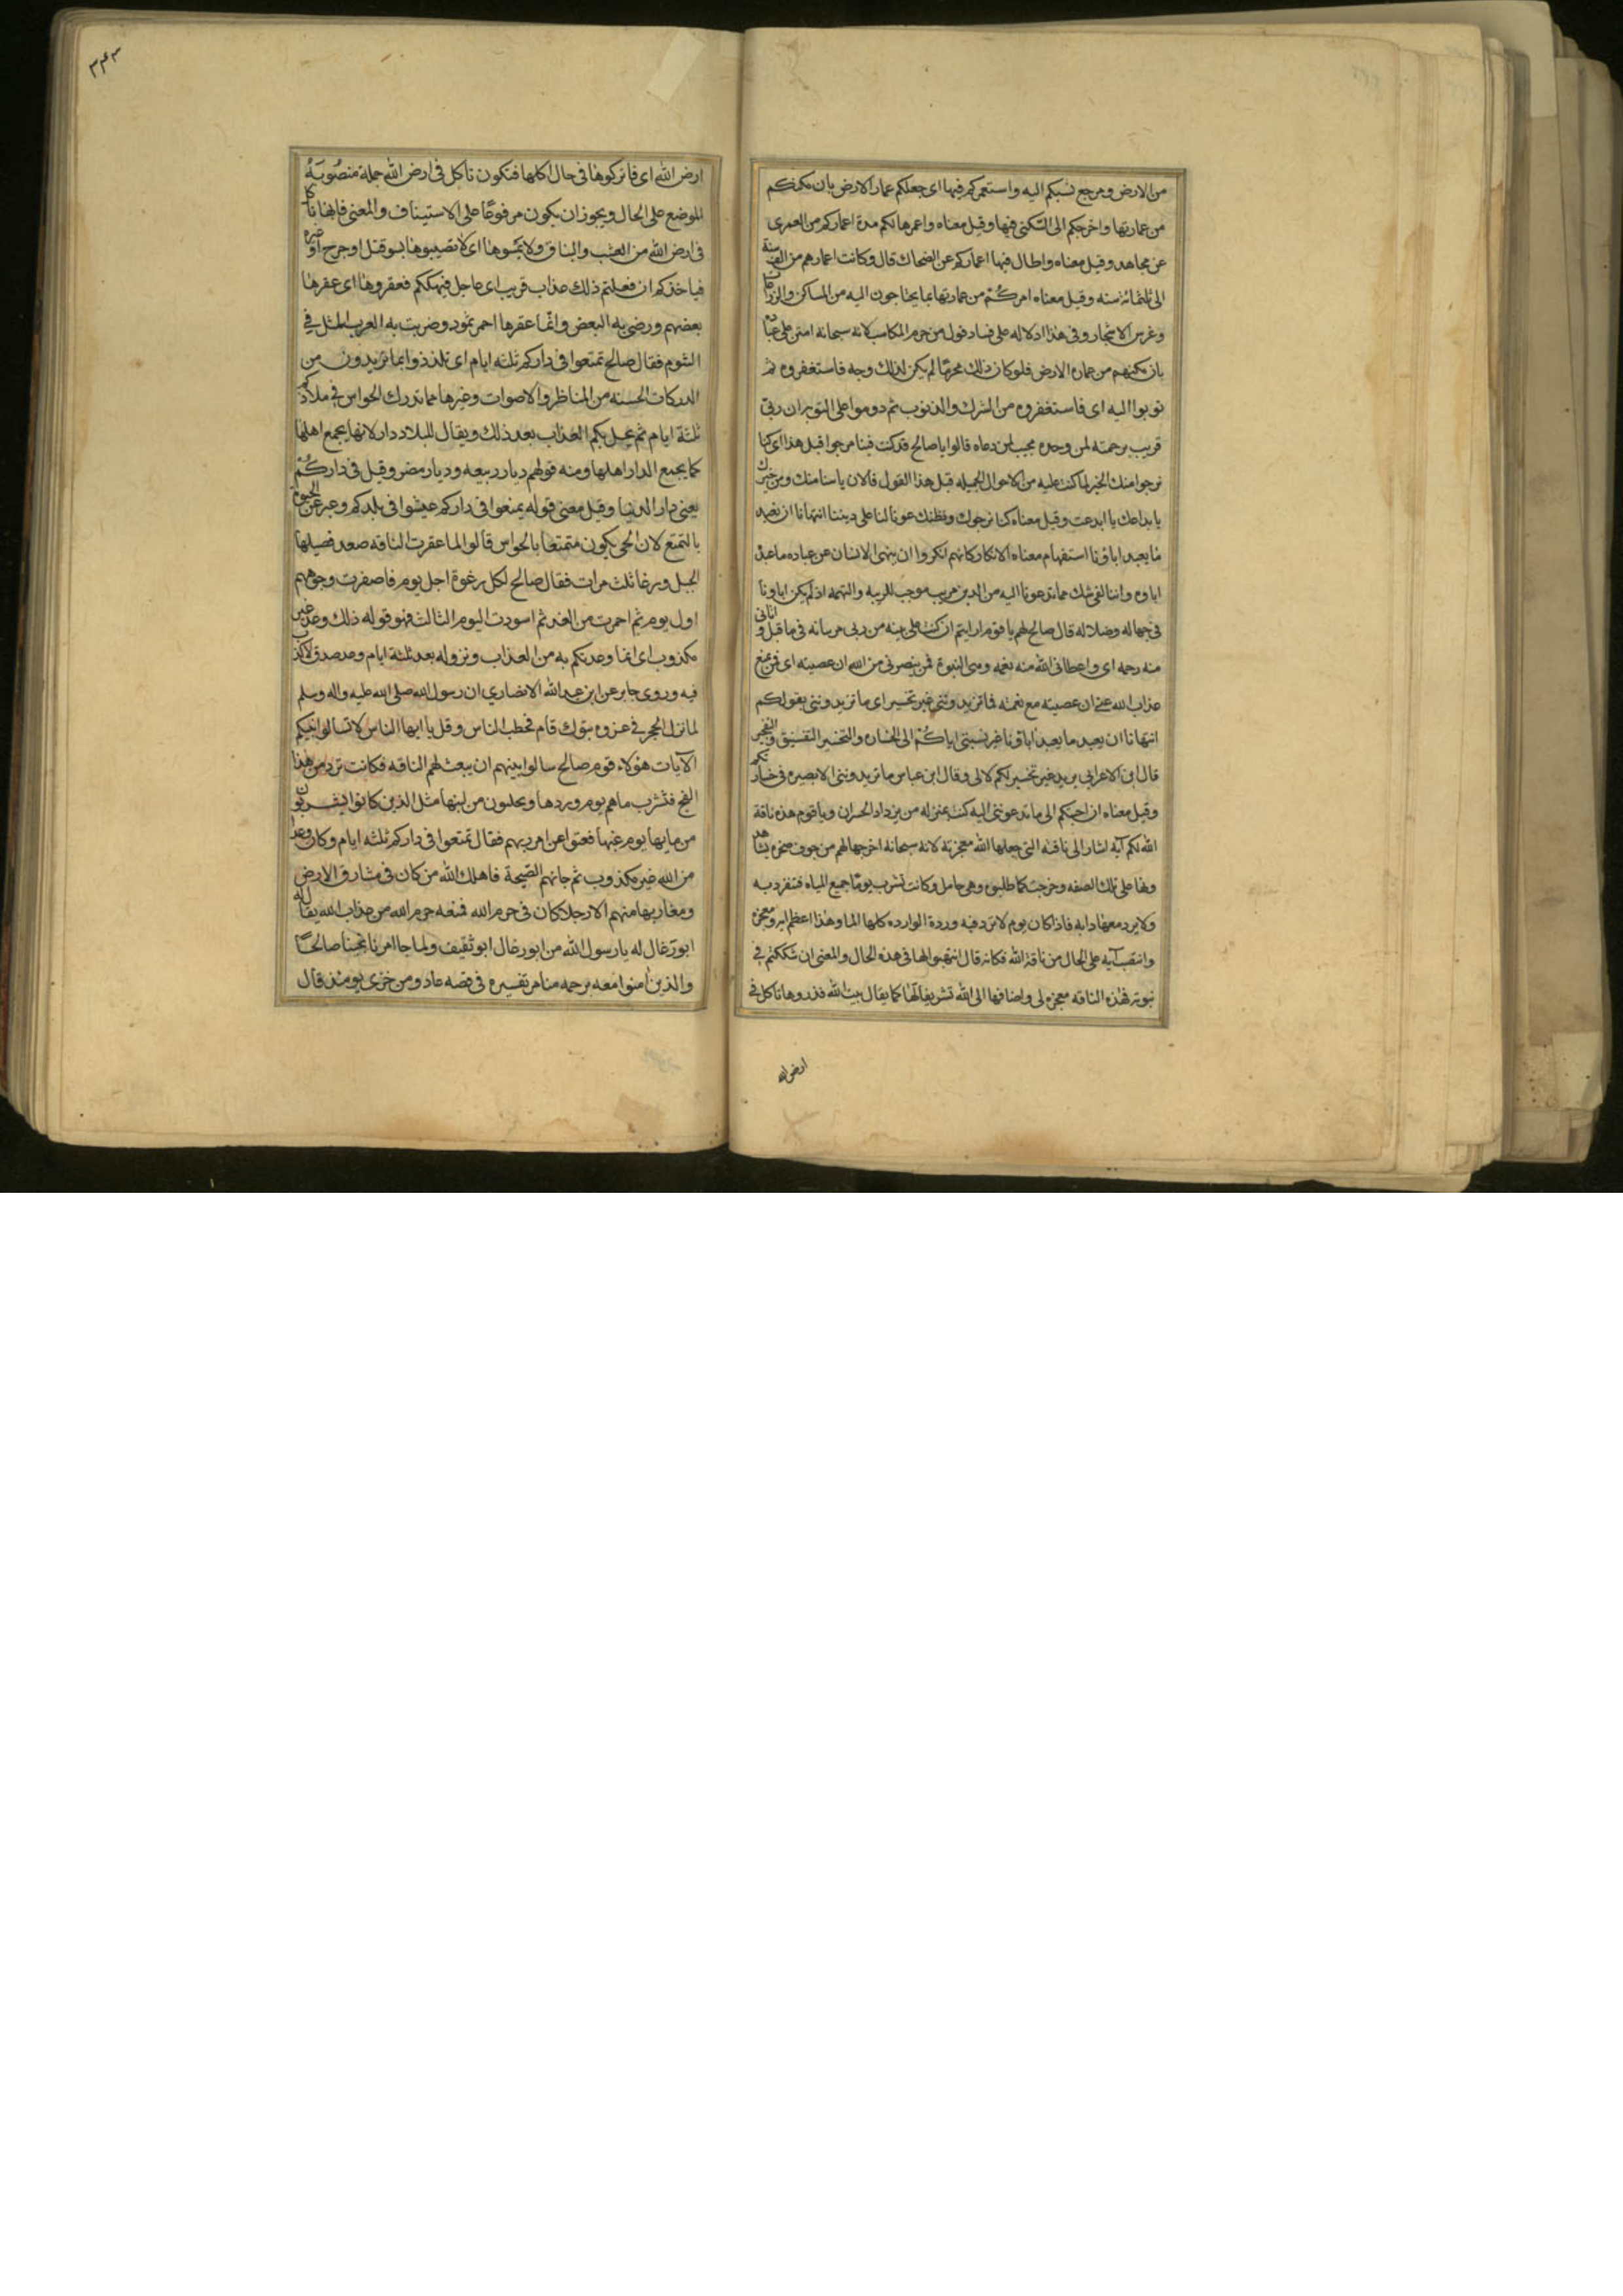 من الارض ومرجع نسبكم اليه واستعمركم فيها اى جعلكم عمار الارض بان مكنكم
من عمارتها واخرجكم الى السكنى فيها وقيل معناه واعمرها لكم مدة اعماركم من العمرى
عن مجاهد وقيل معناه واطال فيها اعماركم عن الضحاك قال وكانت اعمارهم من الف سنة
الى ثلثمائة سنه وقيل معناه امركم من عمارتها بما يحتاجون اليه من المساكن والزراعات
وغرس الاشجار وفى هذا دلاله على فساد قول من حرم المكاسب لانه سبحانه امتن على عباده
بان مكنهم من عماره الارض فلو كان ذلك محرما لم يكن لذلك وجه فاستغفروه ثم
توبوا اليه اى فاستغفروه من الشرك والذنوب ثم دوموا على التوبة ان ربى
قريب برحمته لمن وحده مجيب لمن دعاه قالوا يا صالح قد كنت فينا مرجوا قبل هذا اى كنا
نرجوا منك الخير لما كنت عليه من الاحوال الجميله قبل هذا القول فالان ياسنا منك ومن خيرك
بابداعك ما ابدعت وقيل معناه كنا نرجوك ونظنك عونا لنا على ديننا اتنهانا ان نعبد
ما يعبد اباؤنا استفهام معناه الانكار كانهم انكروا ان ينهى الانسان عن عباده ما عبده
اباوه واننا لفى شك مما تدعونا اليه من الدين مريب موجب للريبه والتهمه اذ لم يكن اباونا
فى جهاله وضلاله قال صالح لهم يا قوم ارايتم ان كنت على بينه من ربى مر بيانه فى ما قبل واتانى
منه رحمه اى واعطانى الله منه نعمه وهى النبوة فمن ينصرنى من الله ان عصيته اى فمن يمنع
عذاب الله عنى ان عصيته مع نعمته فما تزيدوننى غير تخسير اى ما تزيدوننى بقولكم
اتنهانا ان نعبد ما يعبد اباؤنا غير نسبتى اياكم الى الخساره والتخسير التفسيق والتفجير
قال ابن الاعرابى يريد غير تخسير لكم لا لى وقال ابن عباس ما تزيدوننى الا بصيره فى خسارتكم
وقيل معناه ان اجبتكم الى ما تدعوننى اليه كنت بمنزله من يزداد الخسران ويا قوم هذه ناقة
الله لكم آية اشار الى ناقته التى جعلها الله معجزته لانه سبحانه اخرجها لهم من جوف صخره يشاهدونها
على تلك الصفه وخرجت كما طلبوه وهى حامل وكانت تشرب يوما جميع المياه فتنفرد به
ولا يرد معها دابه فاذا كان يوم لا ترد فيه وردة الوارده كلها الما وهذا اعظم ايه ومعجزه
وانتصب آيه على الحال من ناقة الله فكانه قال انتبهوا لها فى هذه الحال والمعنى ان شككتم فى
نبوتى فهذه الناقه معجزه لى واضافها الى الله تشريفا لها كما يقال بيت الله فذروها تاكل فى
ارض الله
٣٤٣
ارض الله اى فاتركوها فى حال اكلها فتكون تاكل فى ارض الله جملة منصوبة
الموضع على الحال ويجوز ان يكون مرفوعا على الاستيناف والمعنى فانها تاكل
فى ارض الله من العشب والنبات ولا تمسوها اى لا تصيبوها بسو قتل او جرح او غيره
فياخذكم ان فعلتم ذلك عذاب قريب اى عاجل فيهلككم فعقروها اى عقرها
بعضهم ورضى به البعض وانما عقرها احمر ثمود وضربت به العرب المثل فى
الشوم فقال صالح تمتعوا فى داركم ثلثه ايام اى تلذذوا بما تريدون من
المدركات الحسنه من المناظر والاصوات وغيرها مما تدرك الحواس فى بلادكم
ثلثة ايام ثم يحل بكم العذاب بعد ذلك ويقال للبلاد دار لانها يجمع اهلها
كما يجمع الدار اهلها ومنه قولهم ديار ربيعه وديار مضر وقيل فى داركم
يعنى دار الدنيا وقيل معنى قوله تمتعوا فى داركم عيشوا فى بلدكم وعبر عن الحيوة
بالتمتع لان الحى يكون متمتعا بالحواس قالوا لما عقرت الناقه صعد فصيلها
الجبل ورغا ثلث مرات فقال صالح لكل رغوة اجل يوم فاصفرت وجوههم
اول يوم ثم احمرت من الغد ثم اسودت اليوم الثالث فهو قوله ذلك وعد غير
مكذوب اى انما وعدتكم به من العذاب ونزوله بعد ثلثة ايام وعد صدق لا كذب
فيه وروى جابر عن ابن عبد الله الانصاري ان رسول الله صلى الله عليه واله وسلم
لما نزل الحجر فى غزوه تبوك قام فخطب الناس وقل يا ايها الناس لا تسالوا نبيكم
الآيات هؤلاء قوم صالح سالوا نبيهم ان يبعث لهم الناقه فكانت ترد من هذا
الفج فتشرب ماهم يوم وردها ويحلبون من لبنها مثل الذين كانوا يشربون
من مايها يوم غبها فعتوا عن امر ربهم فقال تمتعوا فى داركم ثلثه ايام وكان وعدا
من الله غير مكذوب ثم جاتهم الصيحة فاهلك الله من كان فى مشارق الارض
ومغاربها منهم الا رجلا كان فى حرم الله فمنعه حرم الله من عذاب الله يقال له
ابو رغال له يا رسول الله من ابو رغال ابو ثقيف ولما جا امرنا نجينا صالحا
والذين امنوا معه برحمه منا مر تفسيره فى قصه عاد ومن خزى يومئذ قال